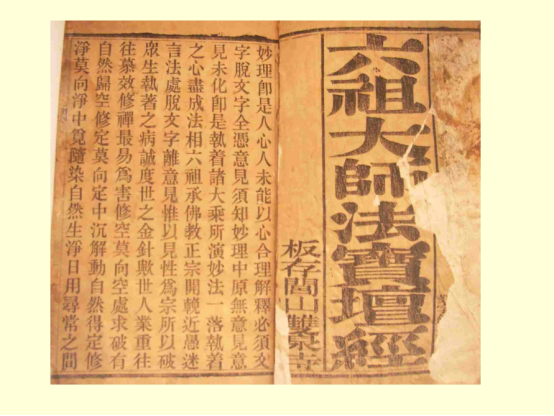 六祖大師法寶壇經
板存閭山雙泉寺
妙理卽是人心人未能以心合理解釋必須文
字脫文字全憑意見須知妙理中原無意見意
見未化卽是執着諸大乘所演妙法一落執着
之心盡成法相六祖承佛教正宗開輓近愚迷
言法處脫文字離意見惟以見性為宗所以破
眾生執著之病誠度世之金針歎世人業重往
往慕效修禪最易為害修空莫向空處求破有
自然歸空修定莫向定中沉解動自然得定修
淨莫向淨中覓隨染自然生淨日用尋常之間